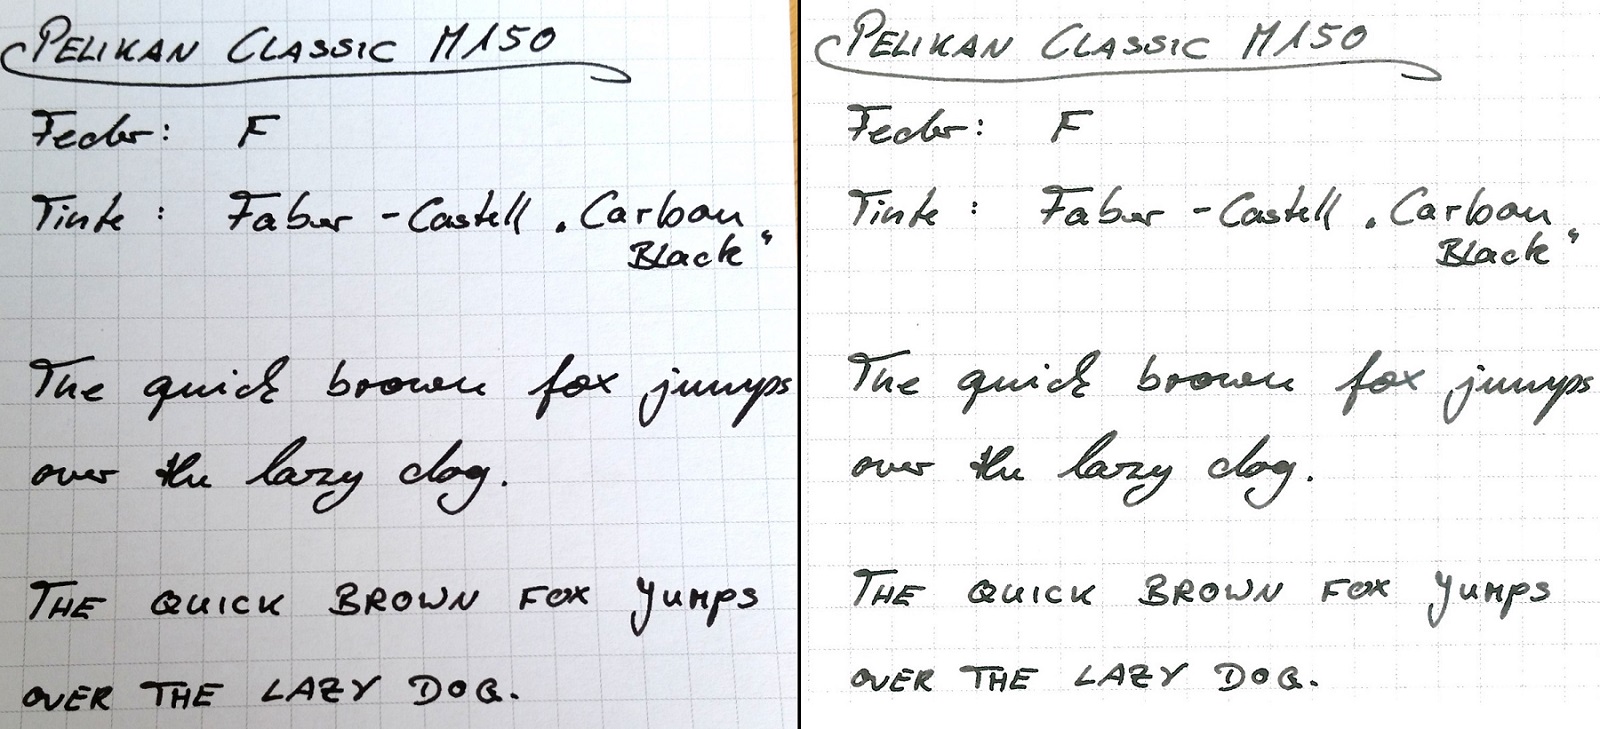 PELIKAN CLASSIC M150
Feder: F
Tinte: Faber-Castell „Carbon
Black“
The quick brown fox jumps
over the lazy dog.
THE QUICK BROWN FOX JUMPS
OVER THE LAZY DOG.
PELIKAN CLASSIC M150
Feder: F
Tinte: Faber-Castell „Carbon
Black“
The quick brown fox jumps
over the lazy dog.
THE QUICK BROWN FOX JUMPS
OVER THE LAZY DOG.